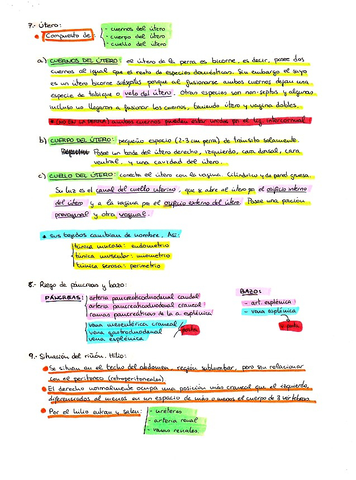 7.- Útero:
• Compuesto de: - cuernos del útero
- cuerpo del útero
- cuello del útero
a) CUERNOS DEL ÚTERO: el útero de la perra es bicorne, es decir, posee dos
cuernos al igual que el resto de especies domésticas. Sin embargo el suyo
es un útero bicorne porque al fusionarse ambos cuernos dejan una
especie de tabique o velo del útero. Otras especies son no-septos y algunas
incluso no llegaron a fusionar los cuernos, teniendo útero y vagina dobles.
ambos cuernos pueden estar unidos por el lig. intercornual
b) CUERPO DEL ÚTERO: pequeño espacio (2-3 cm perra) de tránsito solamente.
Posee un borde del útero derecho, izquierdo, cara dorsal, cara
ventral, y una cavidad del útero.
c) CUELLO DEL ÚTERO: conecta el útero con la vagina. Cilíndrico y de pared gruesa.
Su luz es el canal del cuello uterino, que se abre al útero por el orificio interno
del útero y a la vagina por el orificio externo del útero. Posee una porción
prevaginal y otra vaginal.
• Sus tejidos cambian de nombre. Así:
túnica mucosa: endometrio
túnica muscular: miometrio
túnica serosa: perimetrio
8.- Riego de páncreas y bazo:
PÁNCREAS: arteria pancreaticoduodenal caudal
arteria pancreaticoduodenal craneal
ramas pancreáticas de la a. esplénica
vena mesentérica craneal
vena gastroduodenal
vena esplénica
porta
BAZO:
- art. esplénica
- vena esplénica
v. porta
9.- Situación del riñón. Hilio:
• Se sitúan en el techo del abdomen, región sublumbar, pero sin relacionar
con el peritoneo (retroperitoneales).
• El derecho normalmente ocupa una posición más craneal que el izquierdo,
diferenciados al menos en un espacio de más o menos el cuerpo de 3 vértebras.
• Por el hilio entran y salen: - uréteres
- arteria renal
- venas renales.